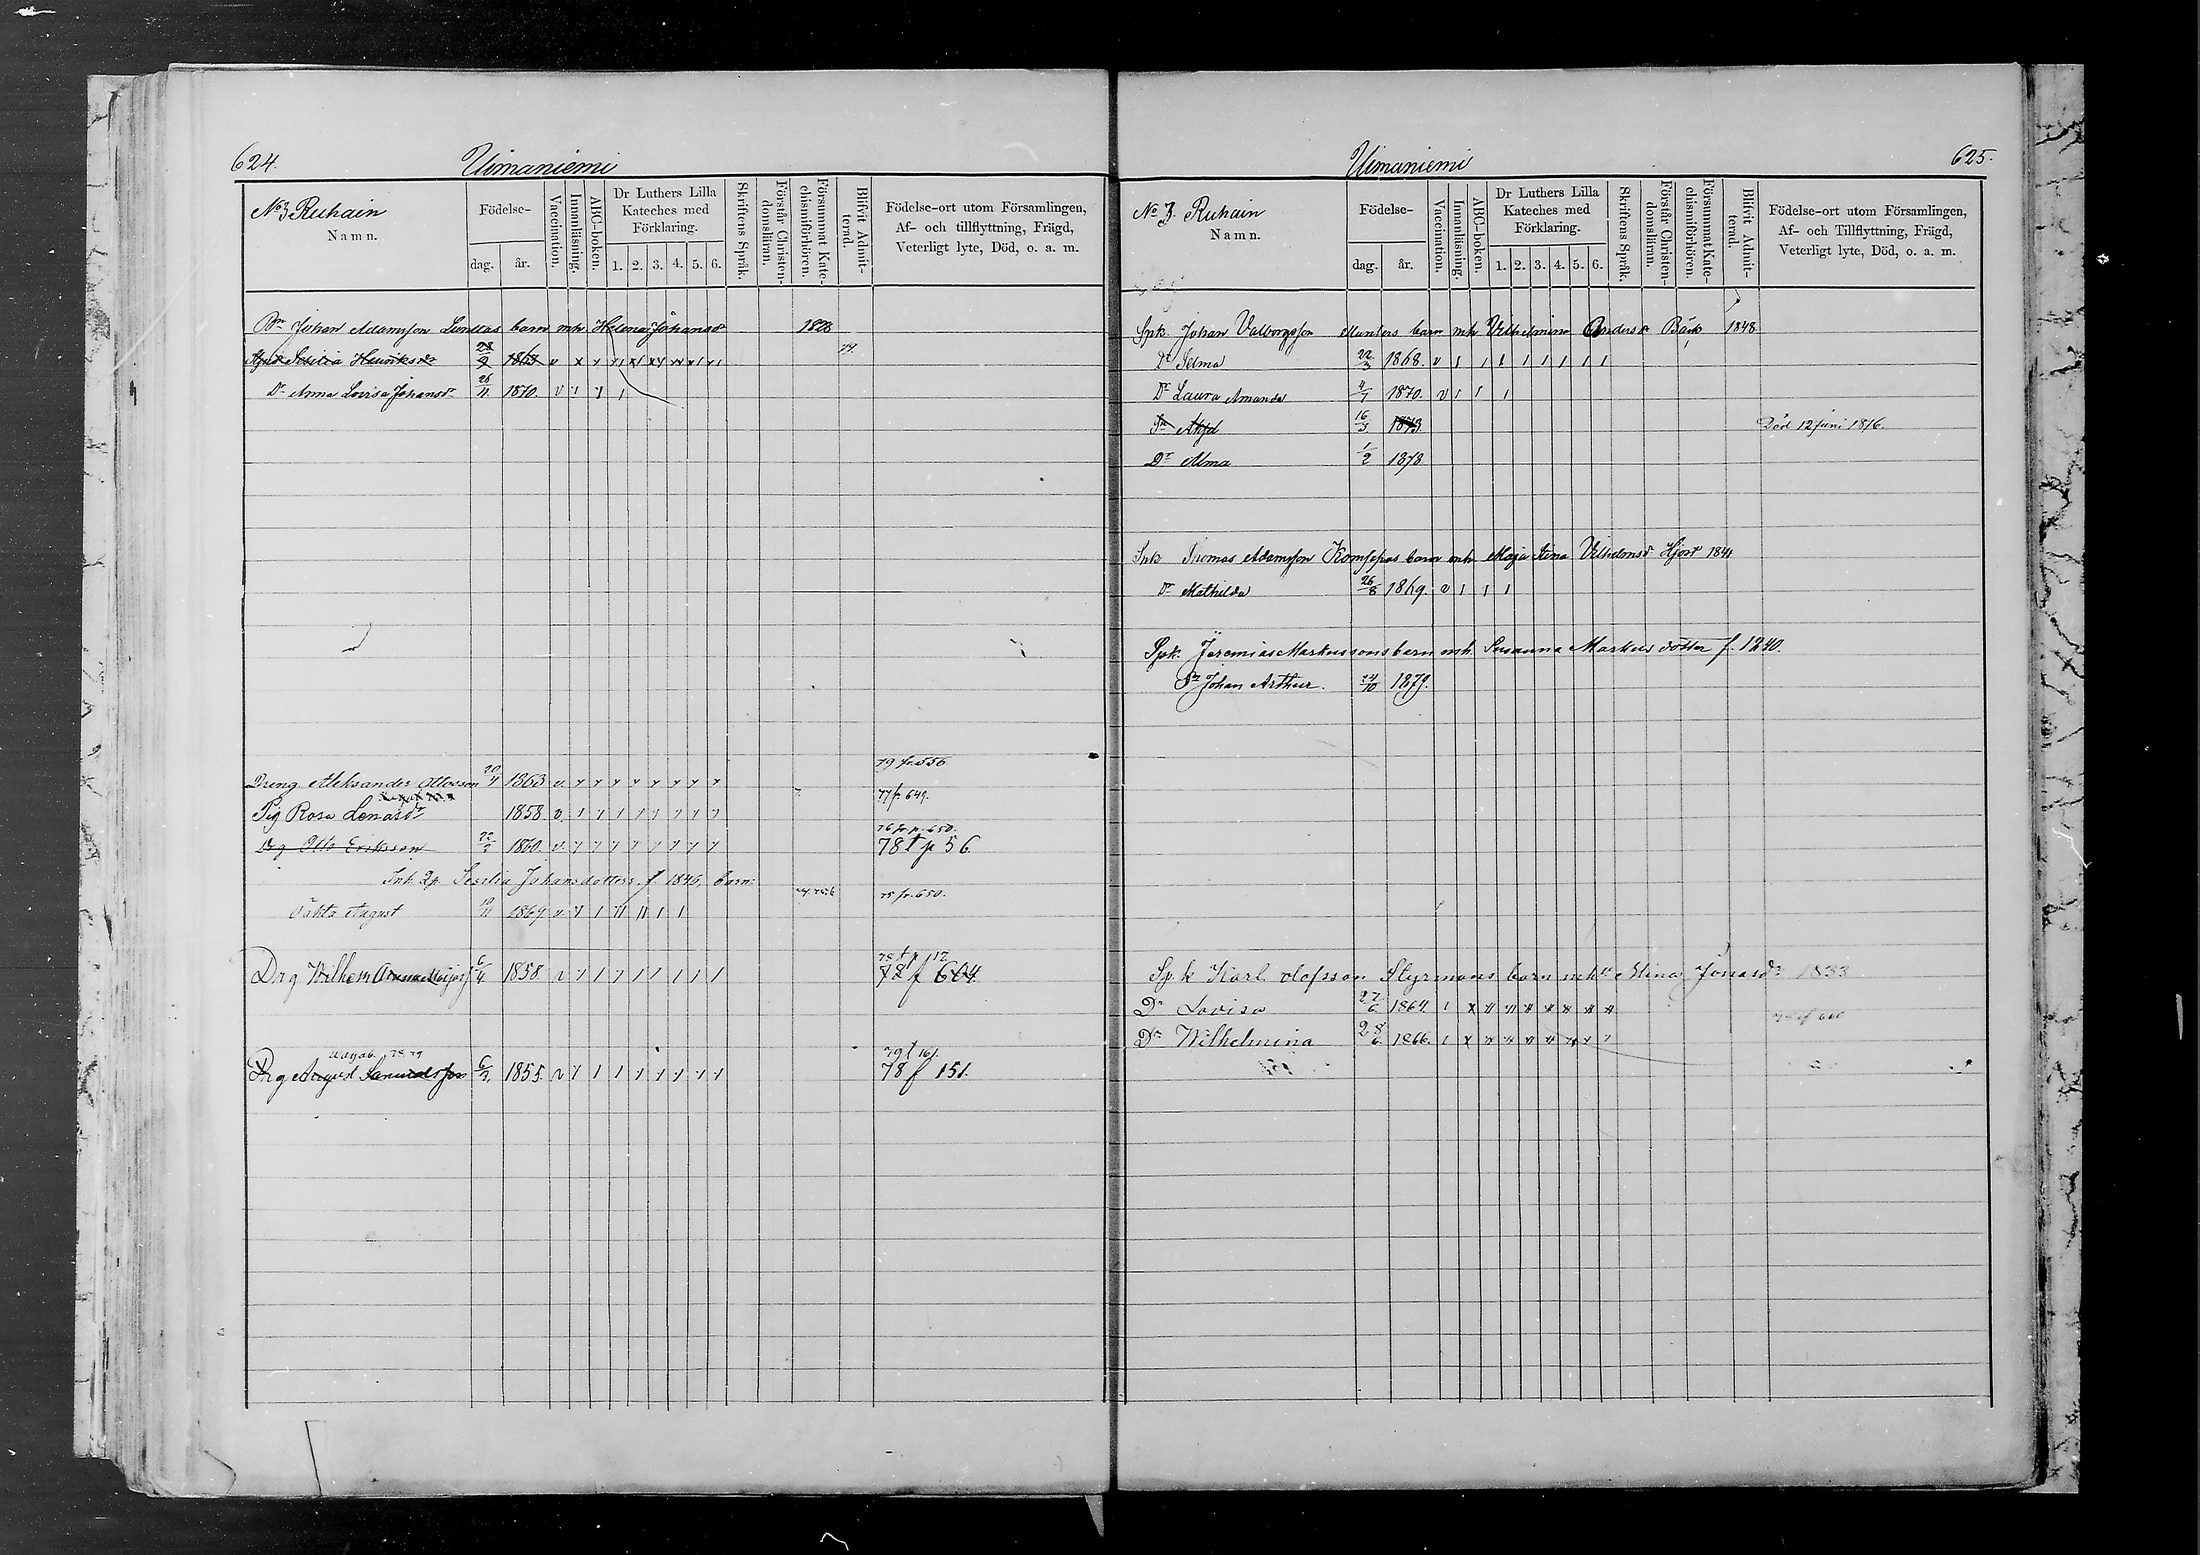 624. Uimaniemi
No 3 Ruhain
Namn.
Födelse-
dag. år.
Vaccination.
Innanläsning.
ABC-boken.
Dr Luthers Lilla
Kateches med
Förklaring.
1. 2. 3. 4. 5. 6.
Skriftens Språk.
Förstår Christen-
domsläran.
Försummat Kate-
chismiförhören.
Blifvit Admit-
terad.
Födelse-ort utom Församlingen,
Af- och tillflyttning, Frägd,
Veterligt lyte, Död, o. a. m.
Johan Adamsson barn mh Helena Johansdr 1828
Henriksdr 28/2 1863 v 79.
Dr Anna Lovisa Johansdr 26/11 1870. v
79 fr. 556.
Dreng Aleksander Ottosson 20/4 1863 v.
77 fr. 649.
Pig Rosa Lenasdr 1858 v.
76 fr. p. 650.
Drg Otto Eriksson 1860. v. 78 t p 56.
Inh. Johansdotters f. 1846, barn:
75 fr. 650.
August 1869 v
78 t p 12
Drg Wilhelm 6/4 1858. v 78 f 604.
79 t 161.
Drg August Samuelsson 1855. v 78 f 151.
Uimaniemi 625.
No 3. Ruhain
Namn.
Födelse-
dag. år.
Vaccination.
Innanläsning.
ABC-boken.
Dr Luthers Lilla
Kateches med
Förklaring.
1. 2. 3. 4. 5. 6.
Skriftens Språk.
Förstår Christen-
domsläran.
Försummat Kate-
chismiförhören.
Blifvit Admit-
terad.
Födelse-ort utom Församlingen,
Af- och Tillflyttning, Frägd,
Veterligt lyte, Död, o. a. m.
Spk Johan Valborgsson Munters barn mh Vilhelmina Andersdr Bäck 1848.
Dr Selma 22/3 1868. v
Dr Laura Amanda 4/7 1870. v
16/3 1873. Död 12 juni 1876.
Dr Alma 1/2 1878.
Spk Thomas Adamsson barn mh Maja Stina Vilhelmsd Hjort 1841
Dr Mathilda 26/8 1869. v
Spk. Jeremias Markussons barn mh. Susanna Markusdotter f. 1840.
Sn Johan Arthur. 24/10 1879.
Spk Karl Olofsson Styrmans barn mh Mina Jonasdr 1833
Dr Lovisa 27/6. 1864.
Dr Wilhelmina 28/6. 1866.